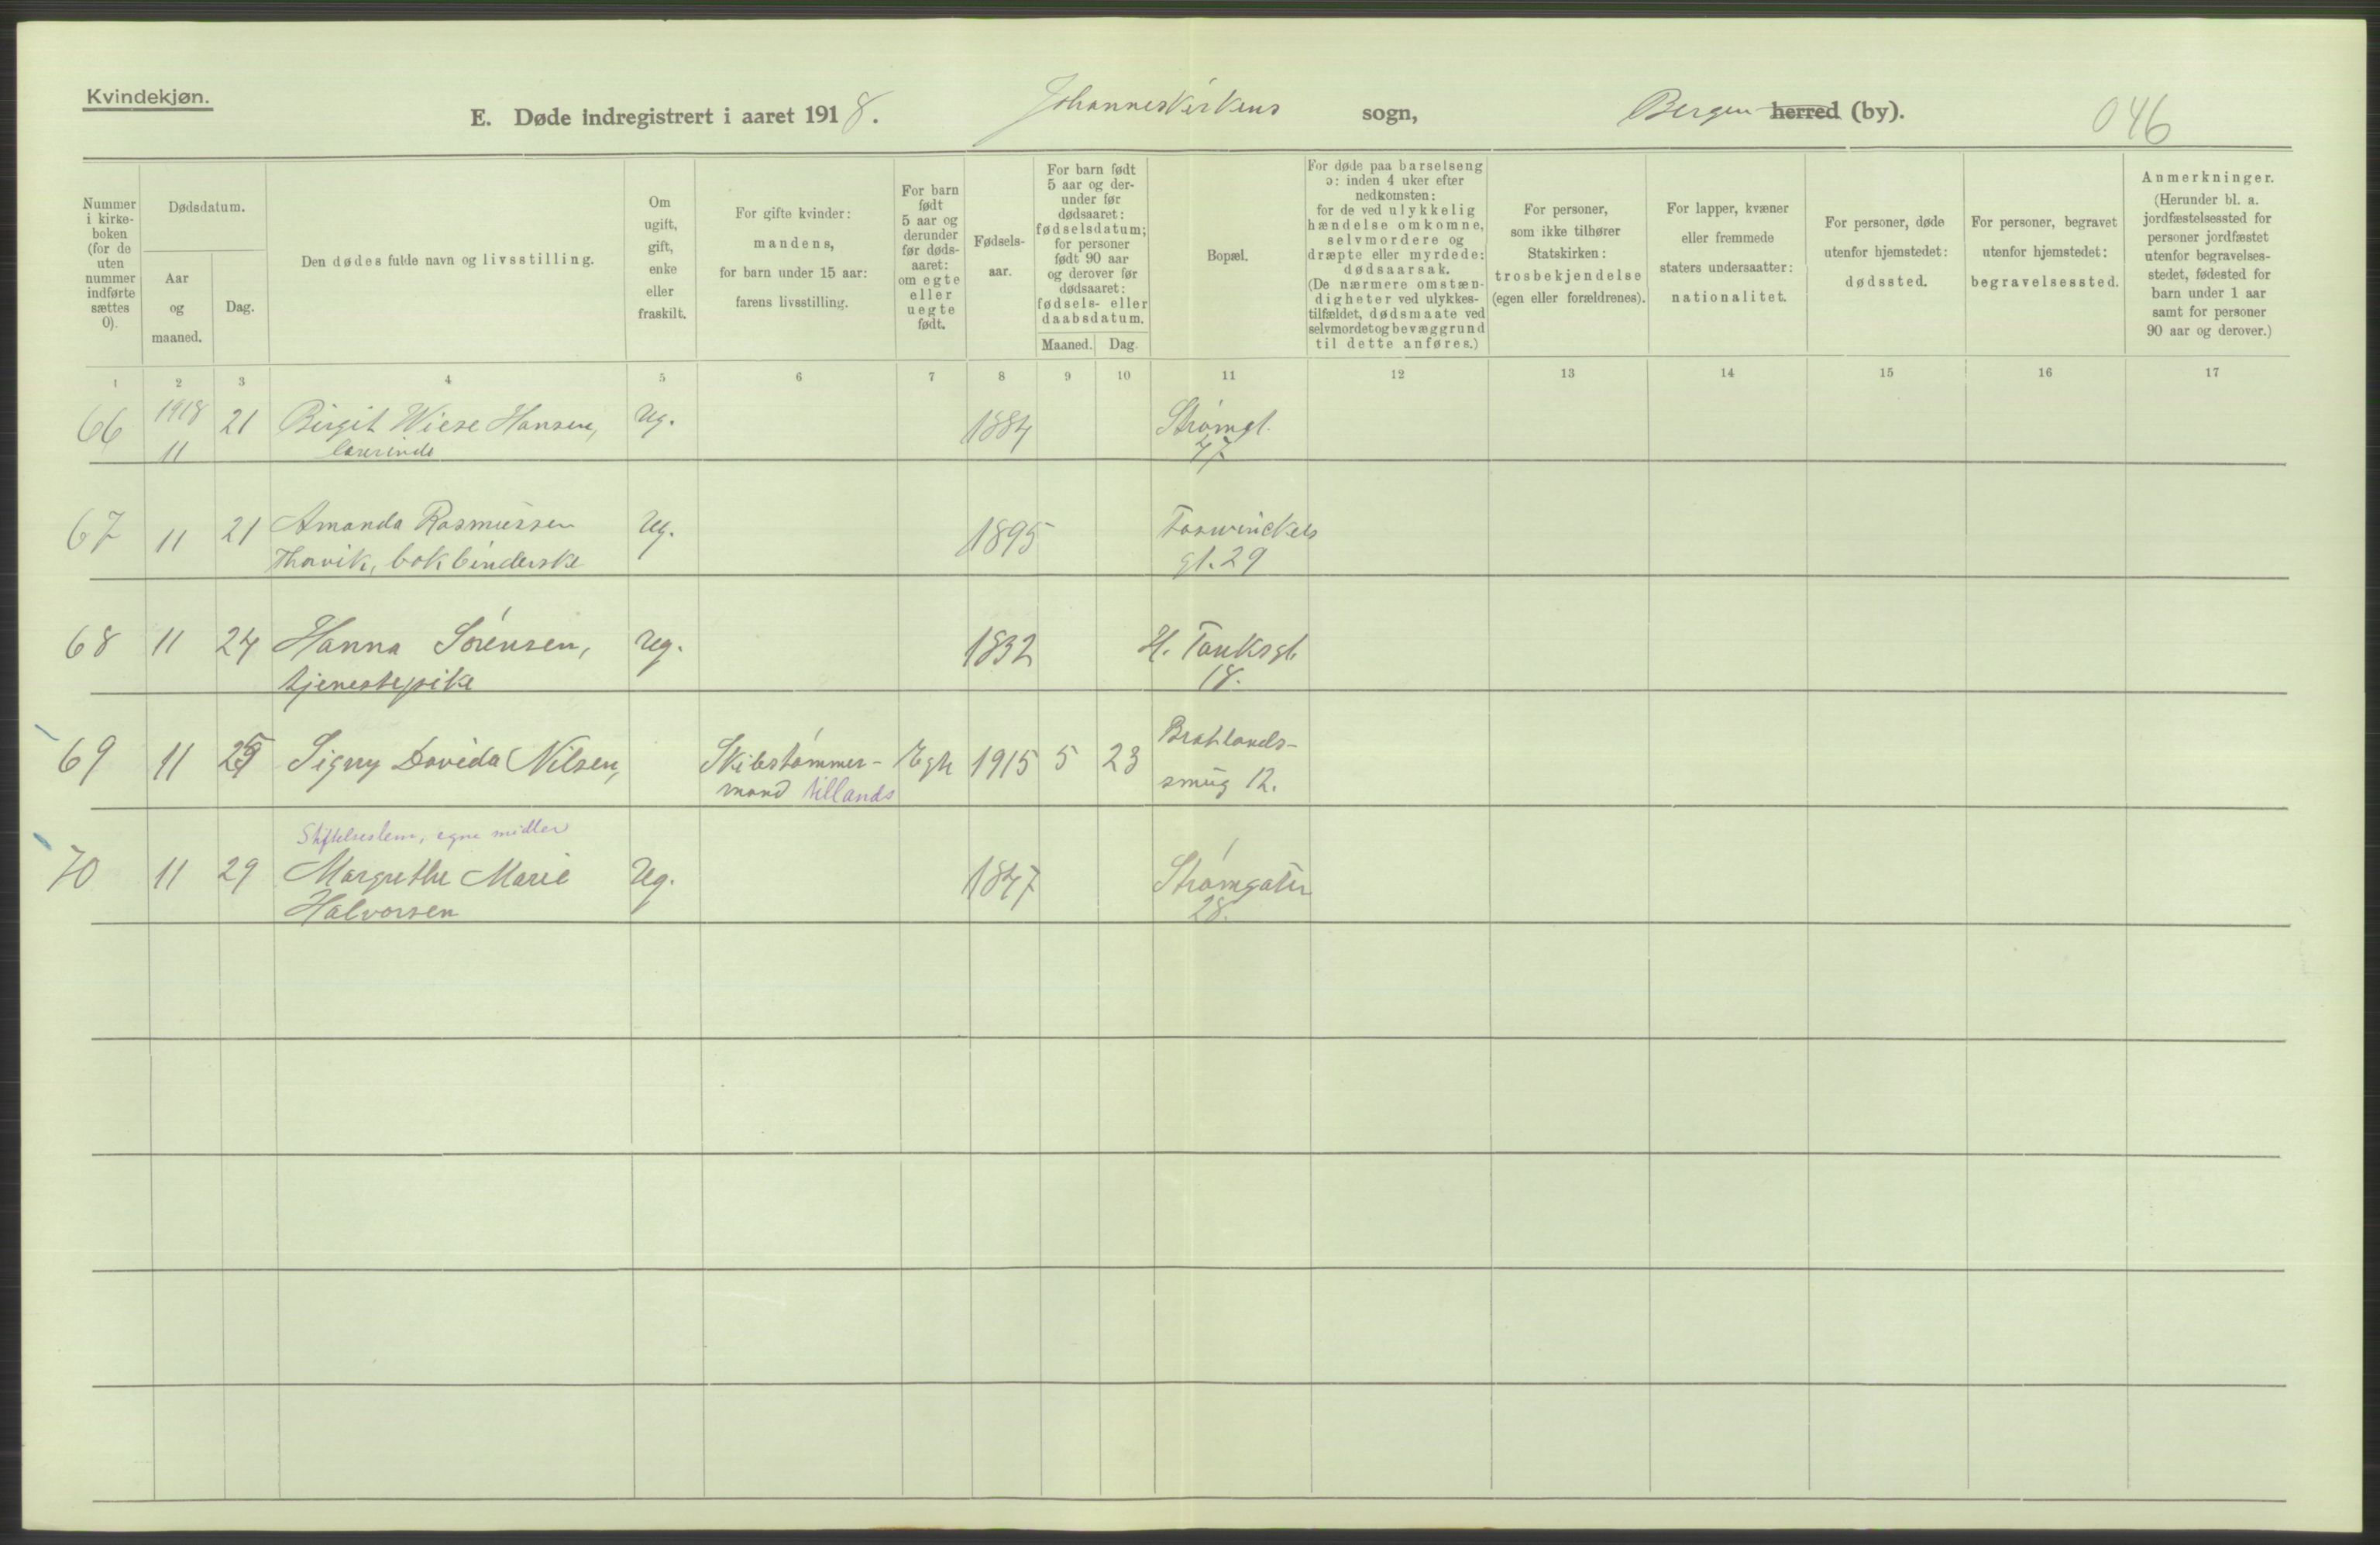 Kvindekjøn.
E. Døde indregistrert i aaret 1918. Johanneskirkens sogn, Bergen herred (by). 046
Nummer i kirke- boken (for de uten nummer indførte sættes 0).
Dødsdatum.
Aar og maaned.
Dag.
Den dødes fulde navn og livsstilling.
Om ugift, gift, enke eller fraskilt.
For gifte kvinder: mandens, for barn under 15 aar: farens livsstilling.
For barn født 5 aar og derunder før døds- aaret: om egte eller uegte født.
Fødsels- aar.
For barn født 5 aar og der- under før dødsaaret: fødselsdatum; for personer født 90 aar og derover før dødsaaret: fødsels- eller daabsdatum.
Maaned. Dag.
Bopæl.
For døde paa barselseng ɔ: inden 4 uker efter nedkomsten: for de ved ulykkelig hændelse omkomne, selvmordere og dræpte eller myrdede: dødsaarsak. (De nærmere omstæn- digheter ved ulykkes- tilfældet, dødsmaate ved selvmordet og bevæggrund til dette anføres.)
For personer, som ikke tilhører Statskirken: trosbekjendelse (egen eller forældrenes).
For lapper, kvæner eller fremmede staters undersaatter: nationalitet.
For personer, døde utenfor hjemstedet: dødssted.
For personer, begravet utenfor hjemstedet: begravelsessted.
Anmerkninger. (Herunder bl. a. jordfæstelsessted for personer jordfæstet utenfor begravelses- stedet, fødested for barn under 1 aar samt for personer 90 aar og derover.)
1 2 3 4 5 6 7 8 9 10 11 12 13 14 15 16 17
66 1918 11 21 Birgit Wiese Hansen, Ug. 1884 Strømgt.
lærerinde 47
67 11 21 Amanda Rasmussen Ug. 1895 Foswinckels
Thorvik, bokbinderske gt. 29
68 11 24 Hanna Sørensen, Ug. 1832 H. Tanksgt.
tjenestepike 18.
69 11 25 Signy Davida Nilsen, Skibstømmer- Egte 1915 5 23 Bratlands-
mand tillands smug 12.
Stiftelseslem, egne midler
70 11 29 Margrethe Marie Ug. 1847 Strømgaten
Halvorsen 28.